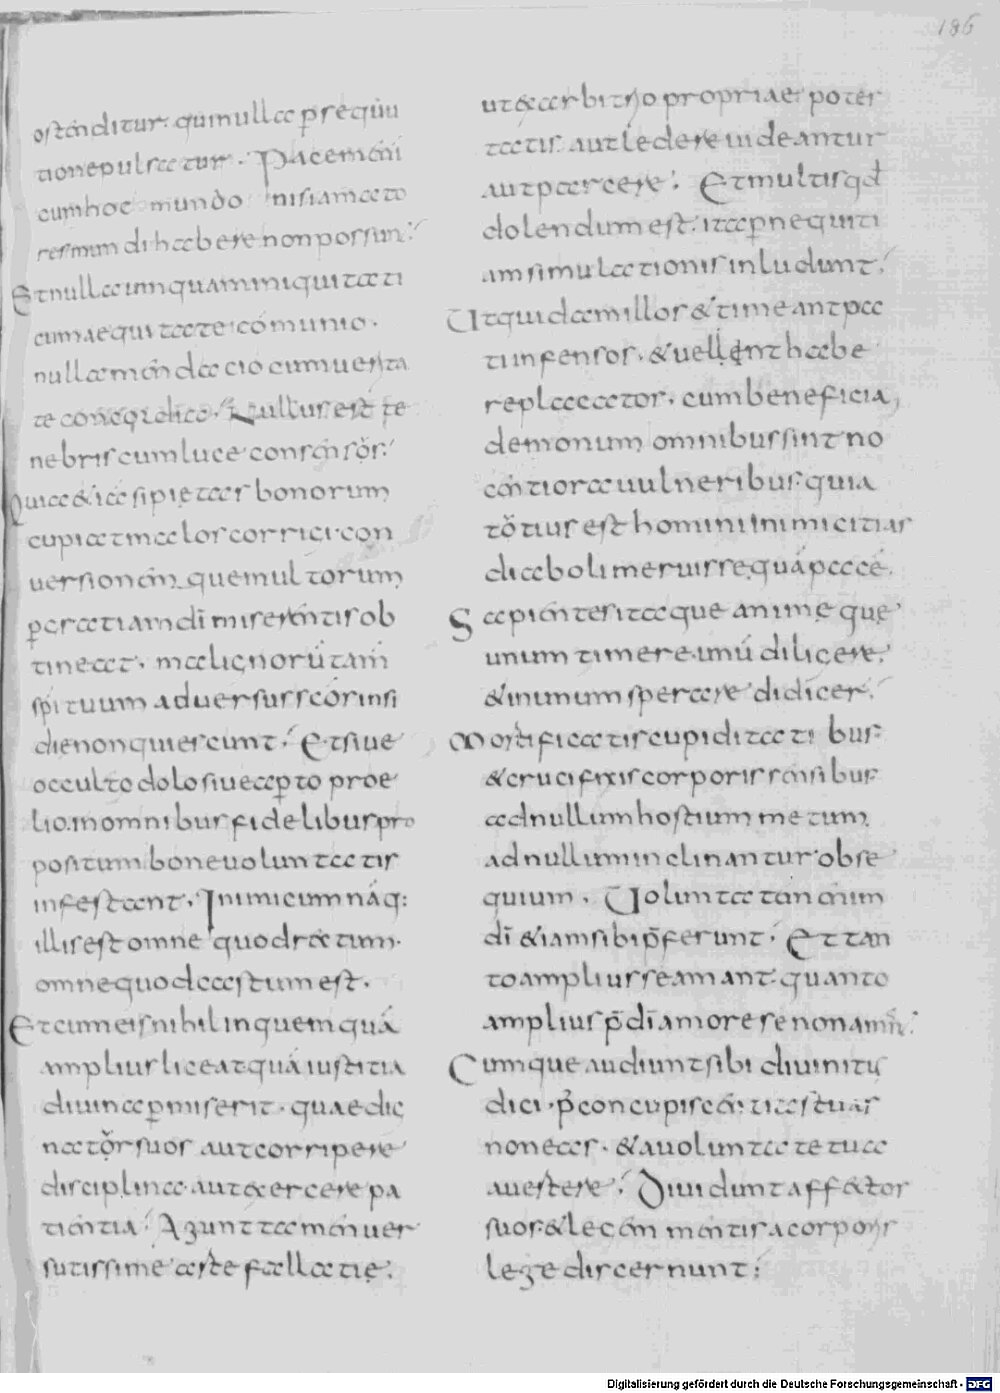 186
ostenditur. qui nulla p̱sequu
tione pulsatur. Pacem eni
cum hoc mundo nisi amato
res mundi habere non possun;
Et nulla umquam iniquitati
cum aequitate comunio.
nulla mendacio cum uerita
te concordia. Nullus est te
nebris cum luce consensõr;
Quia &si pietas bonorum
cupiat malos corrigi. con
uersionem quemultorum
p̱ gratiam dī miserentis ob
tineat. malignorū tam̄
spirituum aduersus scōr insi
die non quiescunt; Et siue
occulto dolo siue ap̱to proe
lio. in omnibus fidelibus pro
positum bone uoluntatis
infestant. Inimicum náq:
illis est omne quod rectum.
omne quod castum est.
Et cum eis nihil inquemquā
amplius liceat quā iustitia
diuina p̱miserit. quae dig
natõr suos aut corripere
disciplina. aut exercere pa
tientia; Agunt tamen uer
sutissime aste fallatię;
ut ex arbitrio propriae potes
tatis. aut ledere uideantur
aut parcere; Et multis qd̄
dolendum est. ita p̱ nequiti
am simulationis inludunt;
Ut quidam illos & timeant pa
ti infensos. & uellent habe
re placatos. cum beneficia
demonum omnibus sint no
centiora uulneribus. quia
tõtius est homini inimicitias
diaboli meruisse. quā pacē.
Sapientes itaque anime que
unum timere. unū diligere.
& in unum sperare didicer;
Mortificatis cupiditati bus
& crucifixis corporis sensibus
ad nullum hostium metum
ad nullum inclinantur obse
quium. Uoluntatem enim
dī & iam sibi p̄ferunt; Et tan
to amplius se amant. quanto
amplius p̄ dī amore se non amn̄;
Cumque audiunt sibi diuinitus
dici. p̄ concupiscentias tuas
non eas. & a uoluntate tua
auertere; Diuidunt affectos
suos. & legem mentis a corporis
lege discernunt;
Digitalisierung gefördert durch die Deutsche Forschungsgemeinschaft - DFG